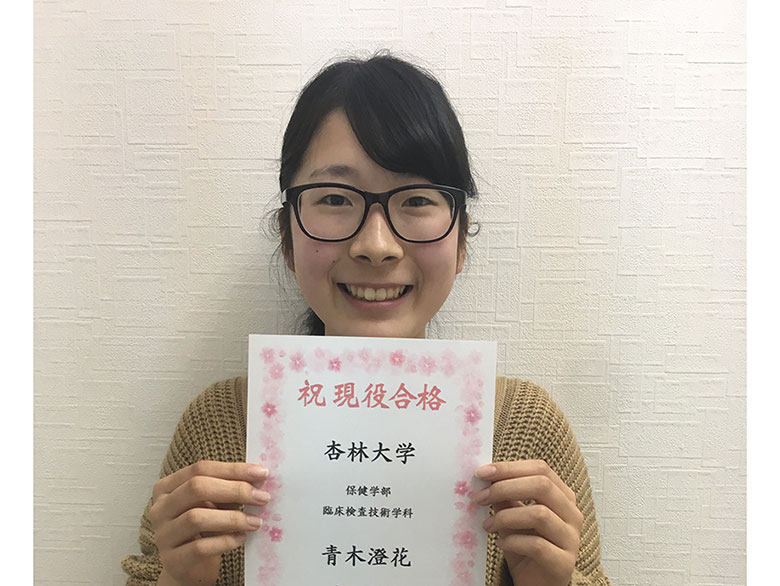 祝 現役合格
杏林大学
保健学部
臨床検査技術学科
青木澄花